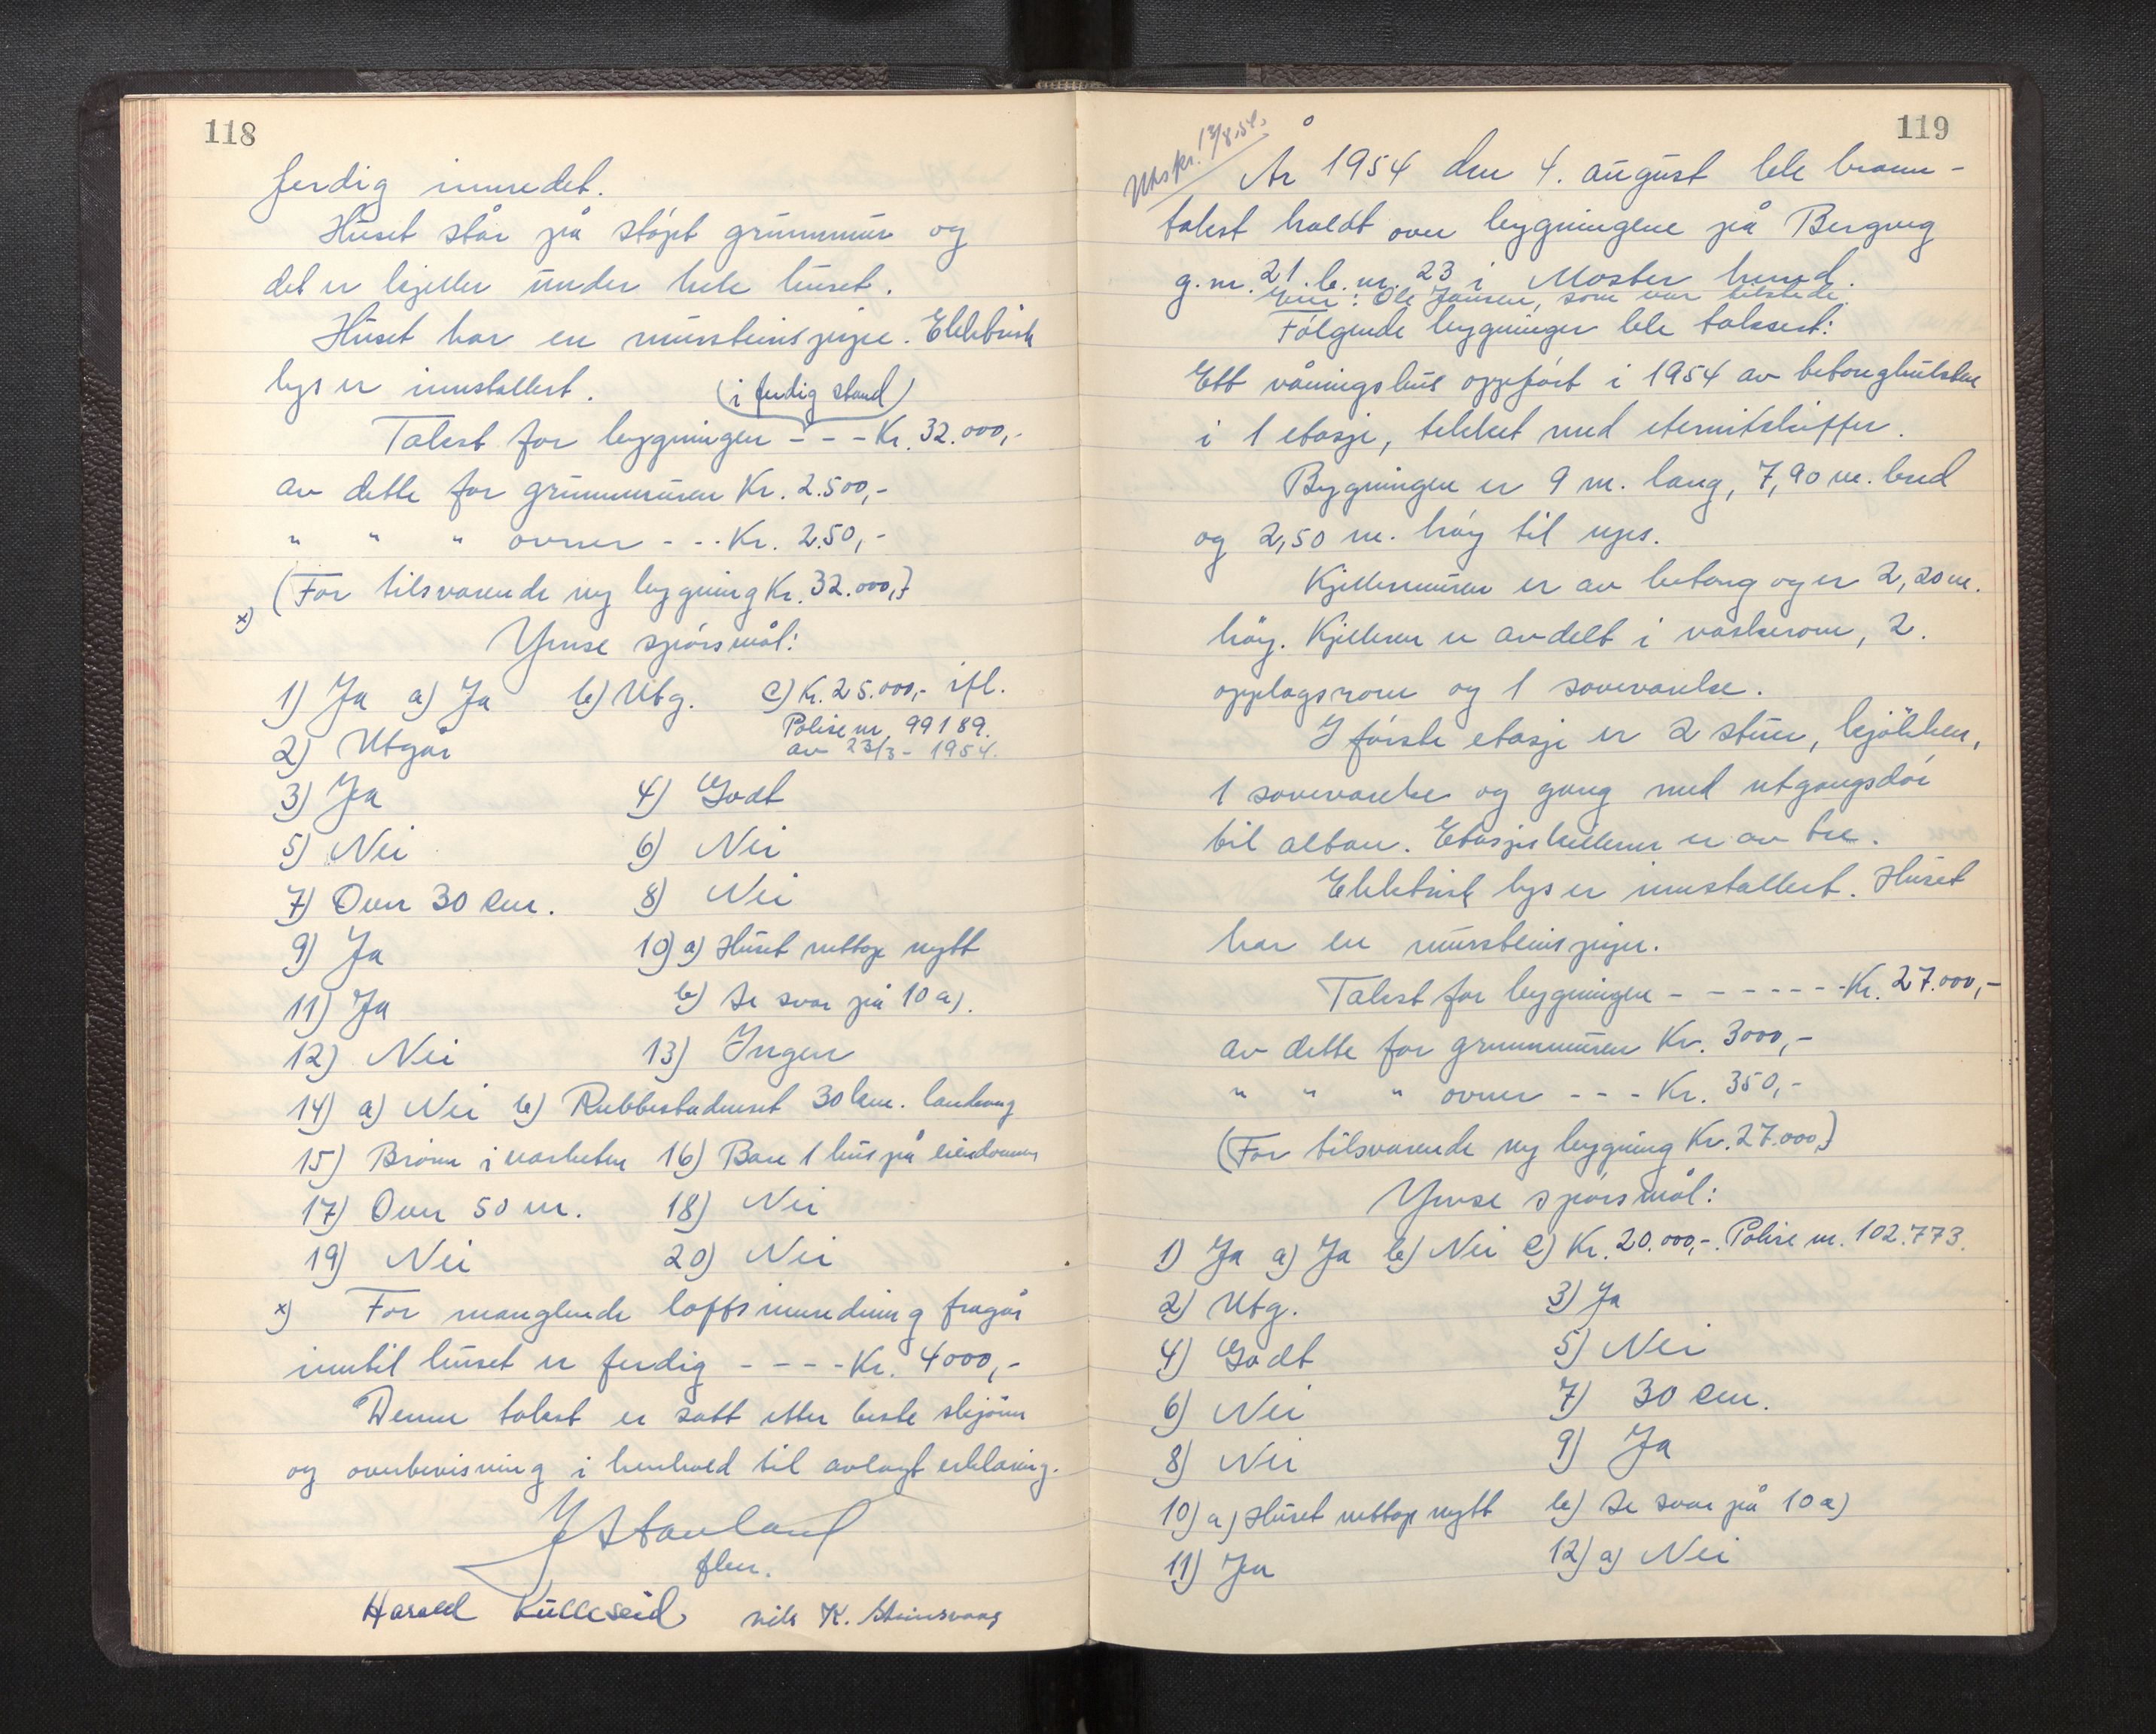 118
ferdig innredet.
Huset står på støpt grunnmur og
det er kjeller under hele huset.
Huset har en mursteinspipe. Elektrisk
lys er innstallert. (i ferdig stand)
Takst for bygningen - - - Kr. 32.000,-
av dette for grunnmuren Kr. 2.500,-
" " " ovner - - - Kr. 250,-
(For tilsvarende ny bygning Kr. 32.000,-)
x)
Ymse spørsmål:
1) Ja a) Ja b) Utg. c) Kr. 25.000,- ifl.
Polise nr. 99189.
2) Utgår av 23/3 - 1954.
3) Ja 4) Godt
5) Nei 6) Nei
7) Over 30 cm. 8) Nei
9) Ja 10) a) Huset nettop nytt
11) Ja b) Se svar på 10 a).
12) Nei 13) Ingen
14) a) Nei b) Rubbestadneset 30 km. landveg
15) Brønn i nærheten 16) Bare 1 hus på eiendommen
17) Over 50 m. 18) Nei
19) Nei 20) Nei
x) For manglende loftsinnredning fragår
inntil huset er ferdig - - - - Kr. 4000,-
Denne takst er satt etter beste skjønn
og overbevisning i henhold til avlagt erklæring.
J Stavland
flm.
Harald Kulleseid Nils K. Steinsvaag
119
Utskr. 12/8.54.
År 1954 den 4. august ble brann-
takst holdt over bygningene på Bergveg
g.nr. 21. b.nr. 23 i Moster herred.
Eier: Ole Jansen, som var tilstede.
Følgende bygninger ble taksert:
Ett våningshus oppført i 1954 av betonghulsten
i 1 etasje, tekket med eternitskiffer.
Bygningen er 9 m. lang, 7,90 m. bred
og 2,50 m. høy til ups.
Kjellermuren er av betong og er 2,20 m.
høy. Kjelleren er avdelt i vaskerom, 2.
opplagsrom og 1 soveværelse.
I første etasje er 2 stuer, kjøkken,
1 soveværelse og gang med utgangsdør
til altan. Etasjeskilleren er av tre.
Elektrisk lys er innstallert. Huset
har en mursteinspipe.
Takst for bygningen - - - - - - Kr. 27.000,-
av dette for grunnmuren Kr. 3000,-
" " " ovner - - - Kr. 350,-
(For tilsvarende ny bygning Kr. 27.000,-)
Ymse spørsmål:
1) Ja a) Ja b) Nei c) Kr. 20.000,-. Polise nr. 102.773.
2) Utg. 3) Ja
4) Godt 5) Nei
6) Nei 7) 30 cm.
8) Nei 9) Ja
10) a) Huset nettop nytt b) Se svar på 10 a)
11) Ja 12) a) Nei